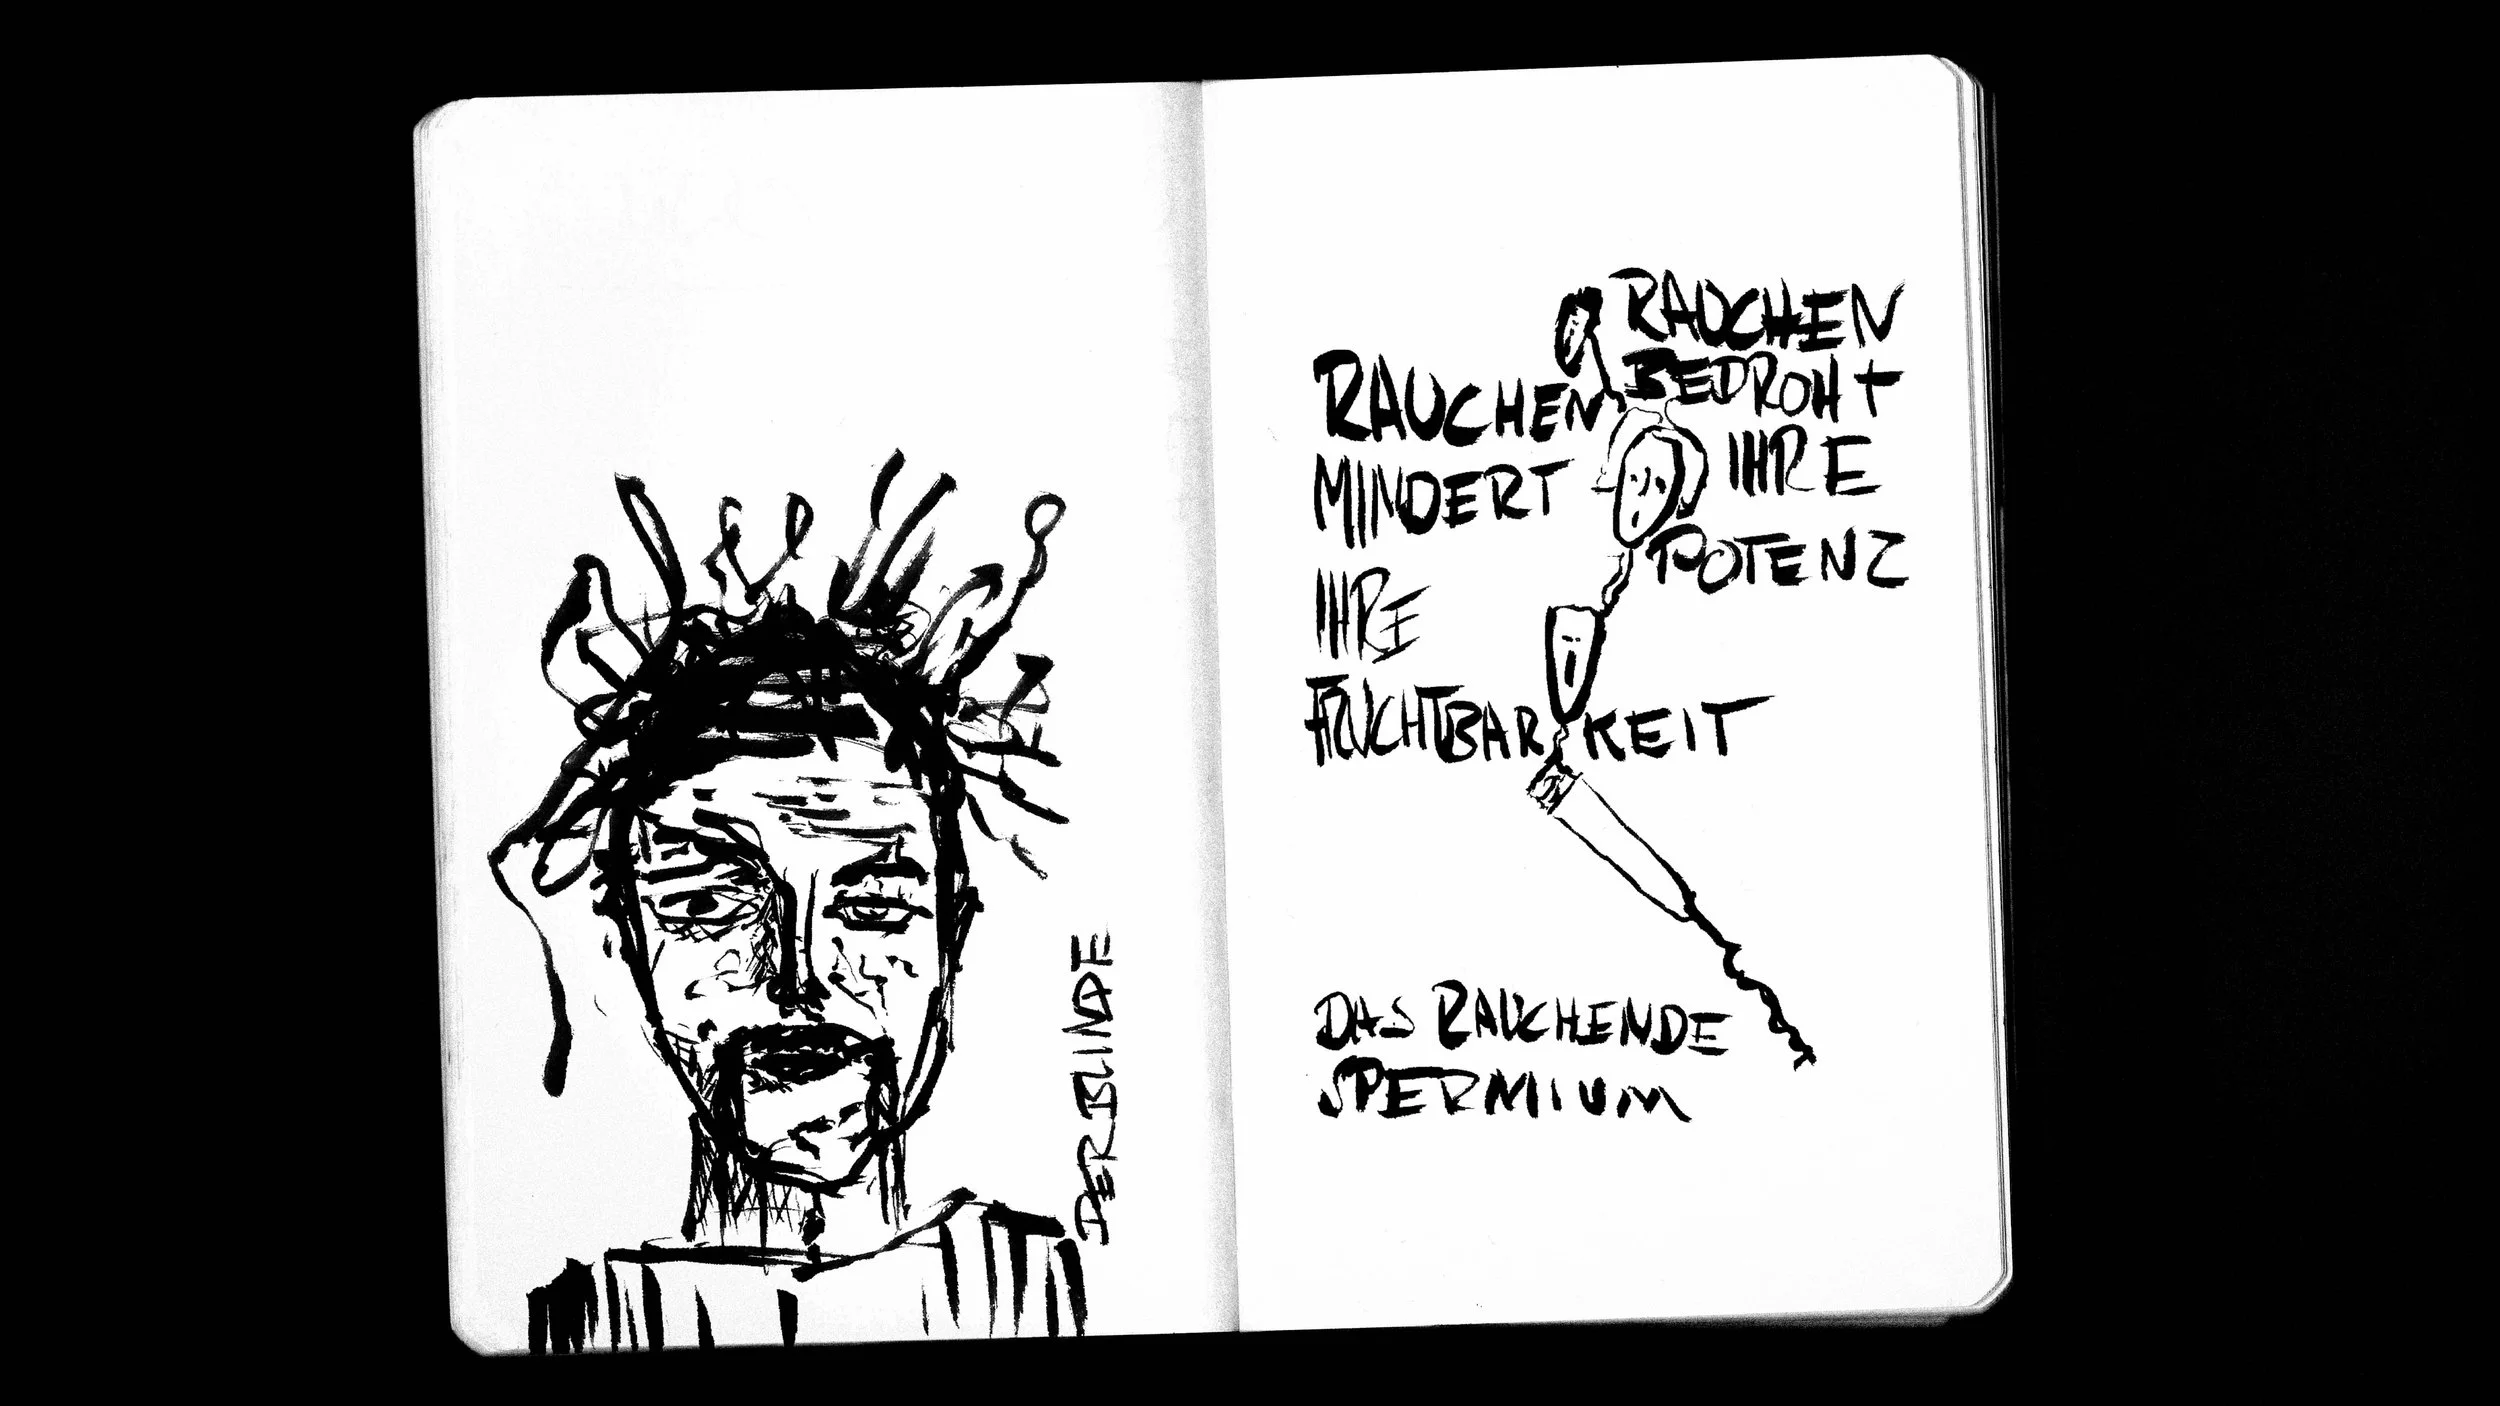 DER BLINDE
RAUCHEN
MINDERT
IHRE
FRUCHTBARKEIT
RAUCHEN
BEDROHT
IHRE
POTENZ
DAS RAUCHENDE
SPERMIUM